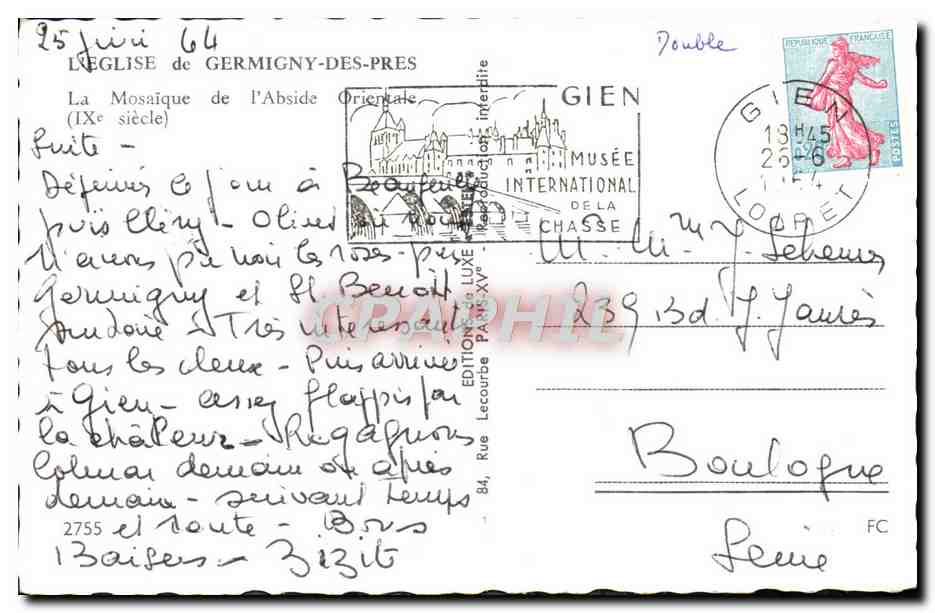 25 juin 64
Double
L'EGLISE de GERMIGNY-DES-PRES
La Mosaïque de l'Abside Orientale
(IXe siècle)
REPUBLIQUE FRANÇAISE
POSTES
GIEN
18H45
26-6
LOIRET
GIEN
MUSÉE
INTERNATIONAL
DE LA
CHASSE
Suite -
le jour à
puis Cléry - Olivet où nous
n'avons pu voir les roses - puis
Germigny et St Benoît
Très intéressants
tous les deux - Puis arrivée
à Gien - assez flappis par
la chaleur - Regagnons
Colmar demain ou après
demain - suivant temps
et route - Bons
Baisers - Zizit
2755
EDITIONS de LUXE
Reproduction interdite
84, Rue Lecourbe PARIS-XVe
CPAPHIL
M. Mme J.
239 Bd. J. Jaurès
Boulogne
Seine
FC